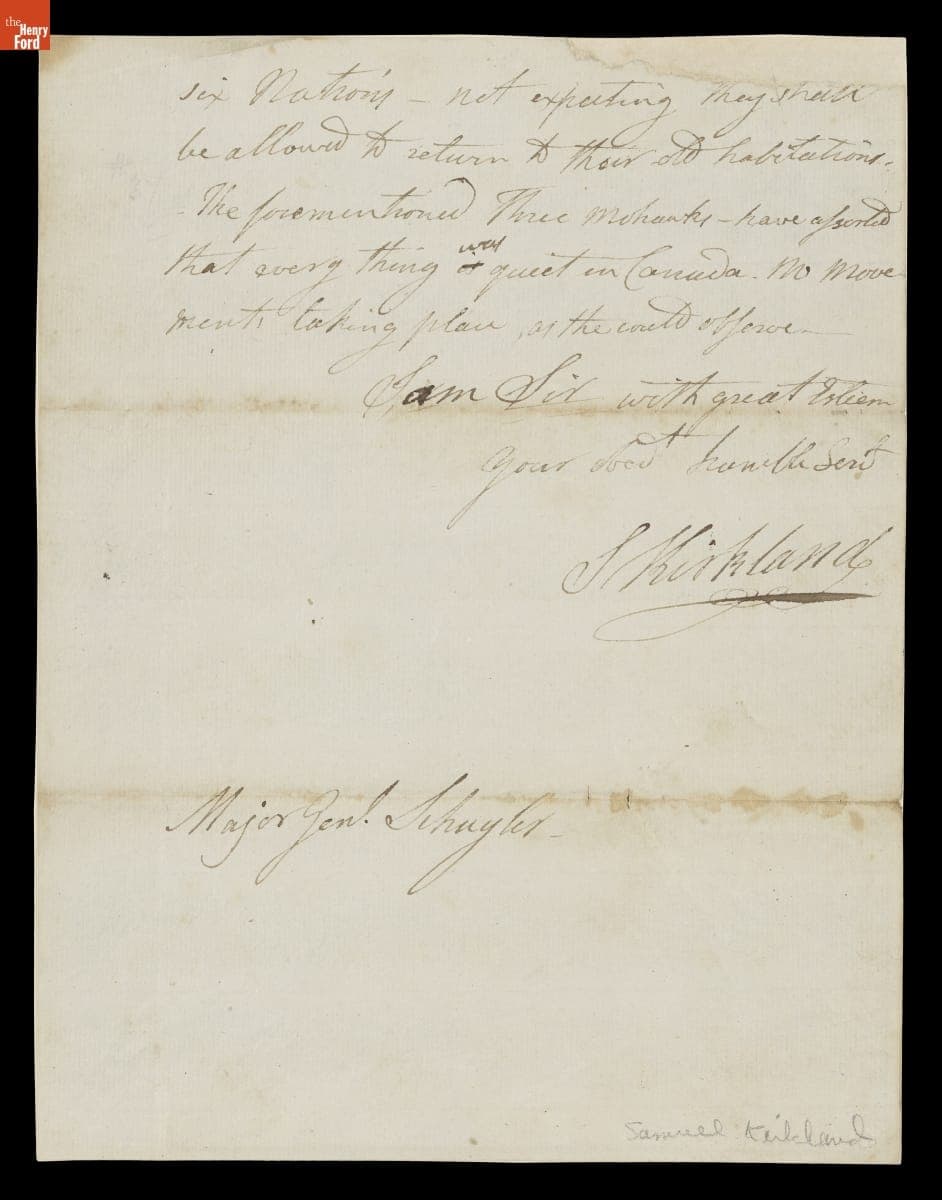 the
Henry
Ford
six Nations - not expecting they shall
be allowed to return to their old habitations.
- The forementioned Three Mohawks - have asserted
was
that every thing is quiet in Canada. No move
ments taking place, as the could observe -
I am Sir with great Esteem
your obedt humble Servt
S Kirkland
Major Genl. Schuyler -
Samuel Kirkland